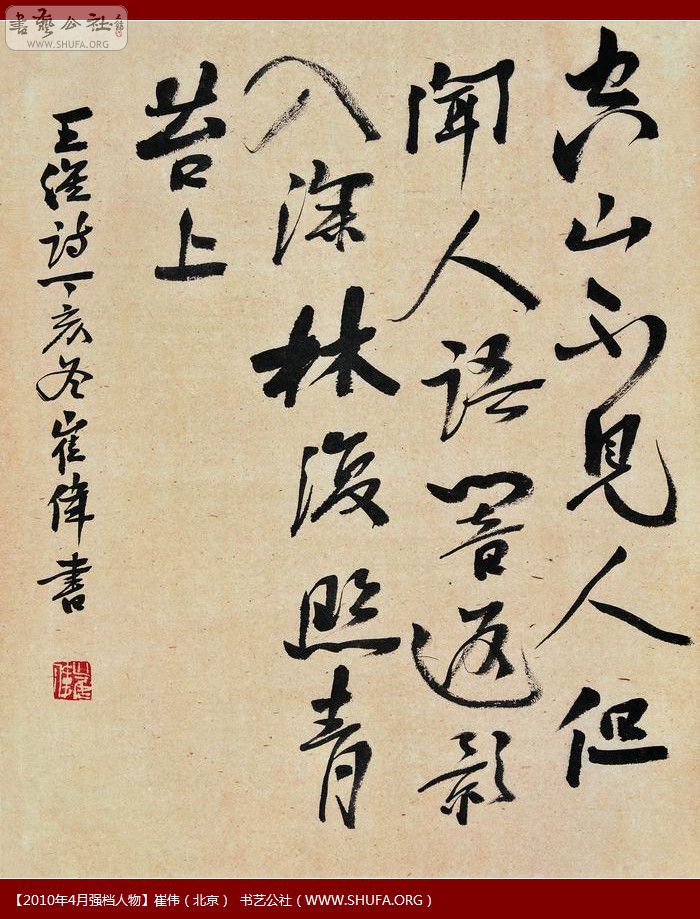 書藝公社
WWW.SHUFA.ORG
空山不見人但
聞人語響返影
入深林復照青
苔上
王維詩丁亥冬崔偉書
崔偉
【2010年4月强档人物】崔伟（北京） 书艺公社（WWW.SHUFA.ORG）